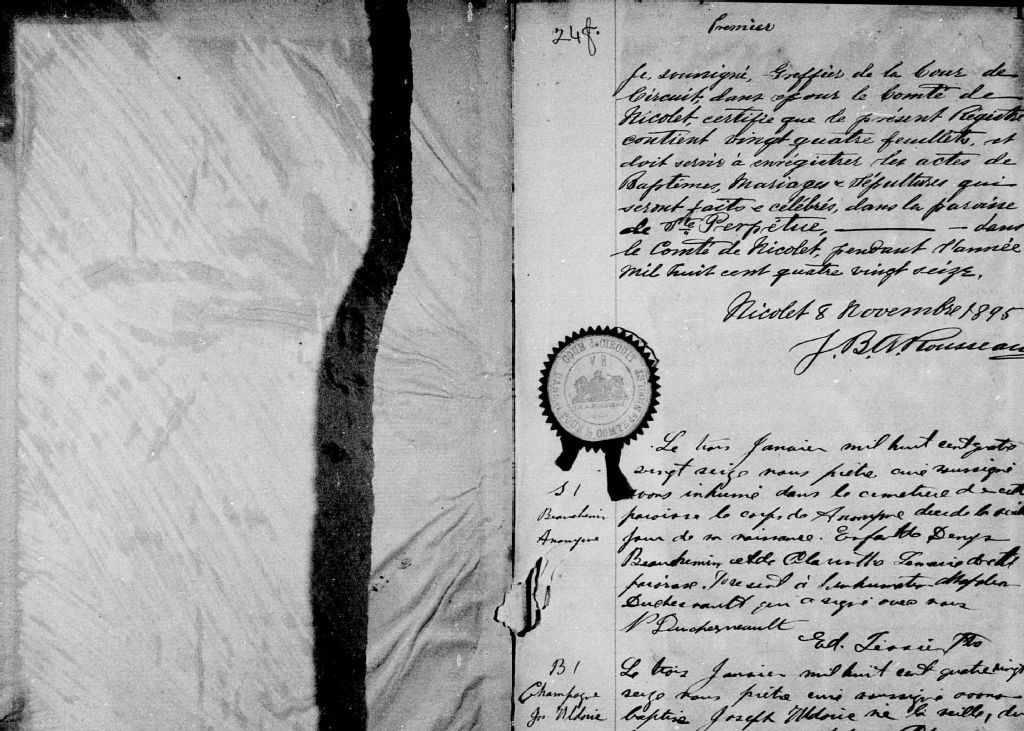 24 f.
Premier
Je, soussigné, Greffier de la Cour de
Circuit, dans et pour le Comté de
Nicolet, certifie que le présent Registre
contient vingt quatre feuillets, et
doit servir à enrégistrer les actes de
Baptêmes, Mariages & Sépultures qui
seront faits & célébrés, dans la paroisse
de Ste Perpétue, — dans
le Comté de Nicolet, pendant l'année
mil huit cent quatre vingt seize.
Nicolet 8 Novembre 1895
J. B. A. Rousseau
V R
COUR de CIRCUIT
Le trois Janvier mil huit cent quatre
vingt seize nous prêtre curé soussigné
S 1
avons inhumé dans le cimetière de cette
Beauchemin
paroisse le corps de Anonyme décédé le
Anonyme
jour de sa naissance. Enfant de Denys
Beauchemin et de
paroisse. Présent à l'inhumation
Duchesneault qui a signé avec nous
N Duchesneault
Ed. Tessier Ptre
B 1
Le trois Janvier mil huit cent quatre vingt
Champagne
seize nous prêtre curé soussigné avons
Jos Uldoric
baptisé Joseph Uldoric né la veille, du